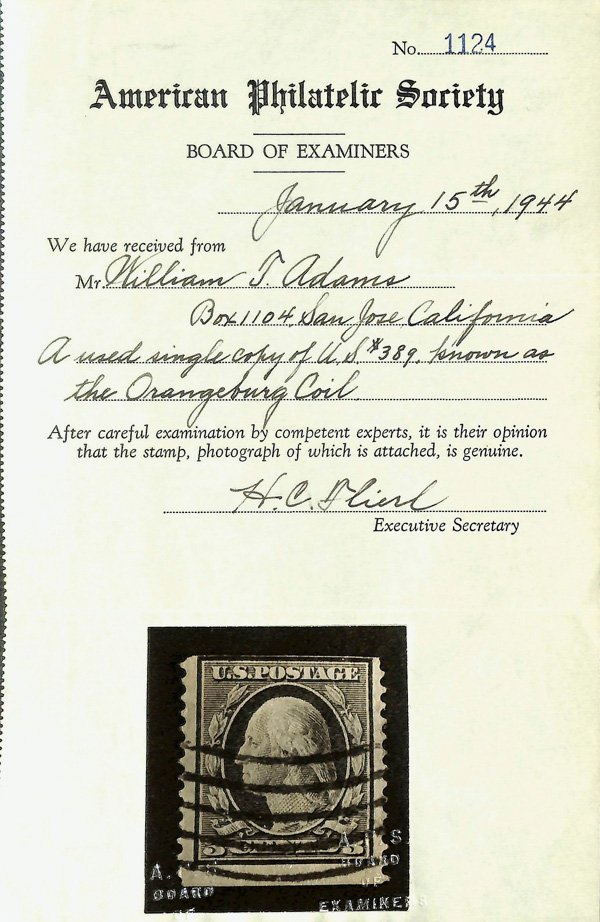 No. 1124
American Philatelic Society
BOARD OF EXAMINERS
January 15th, 1944
We have received from
Mr. William T. Adams
Box 1104, San Jose, California
A used single copy of U.S. #389, known as
the Orangeburg Coil
After careful examination by competent experts, it is their opinion
that the stamp, photograph of which is attached, is genuine.
H. C. Flierl
Executive Secretary
U.S. POSTAGE
3 CENTS 3
A. P. S.
BOARD
OF
EXAMINERS
A. P. S
BOARD
OF